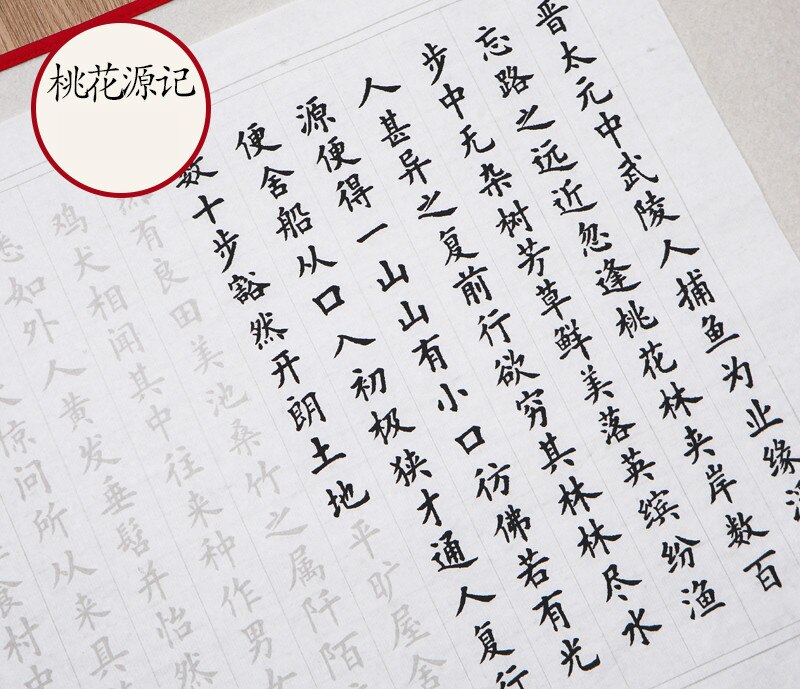 桃花源记
晋太元中武陵人捕鱼为业缘溪
忘路之远近忽逢桃花林夹岸数百
步中无杂树芳草鲜美落英缤纷渔
人甚异之复前行欲穷其林林尽水
源便得一山山有小口彷佛若有光
便舍船从口入初极狭才通人复行
数十步豁然开朗土地平旷屋舍
然有良田美池桑竹之属阡陌
鸡犬相闻其中往来种作男女
悉如外人黄发垂髫并怡然
惊问所从来具
食村中